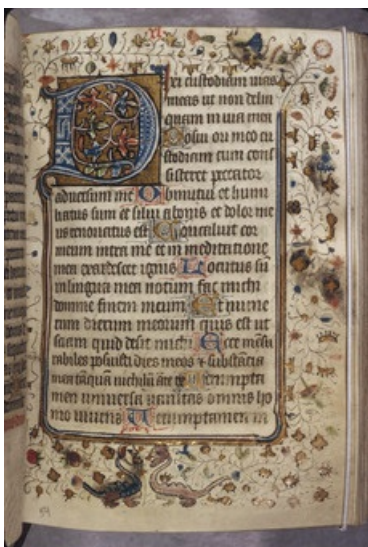 Dixi custodiam uias
meas ut non delin
quam in lingua mea
Posui ori meo cu
stodiam cum cons
isteret peccator
aduersum me Obmutui et humi
liatus sum et silui a bonis et dolor me
us renouatus est Concaluit cor
meum intra me et in meditatione
mea exardescet ignis Locutus sū
in lingua mea notum fac michi
domine finem meum Et nume
rum dierum meorum quis est ut
sciam quid desit michi Ecce mēsu
rabiles posuisti dies meos & substācia
mea tāquā nichilū āte te Uerumpta
men uniuersa uanitas omnis ho
mo uiuens Uerumptamen in